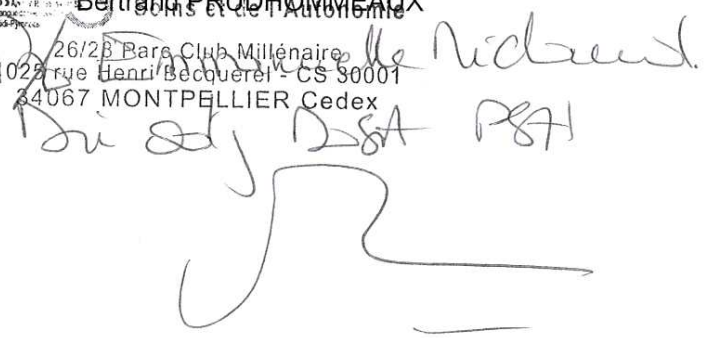 Bertrand PRUDHOMMEAUX
Soins et de l'Autonomie
26/28 Parc Club Millénaire
1025 rue Henri Becquerel - CS 30001
34067 MONTPELLIER Cedex
Emmanuelle Michaud.
Dir adj DSA PSH